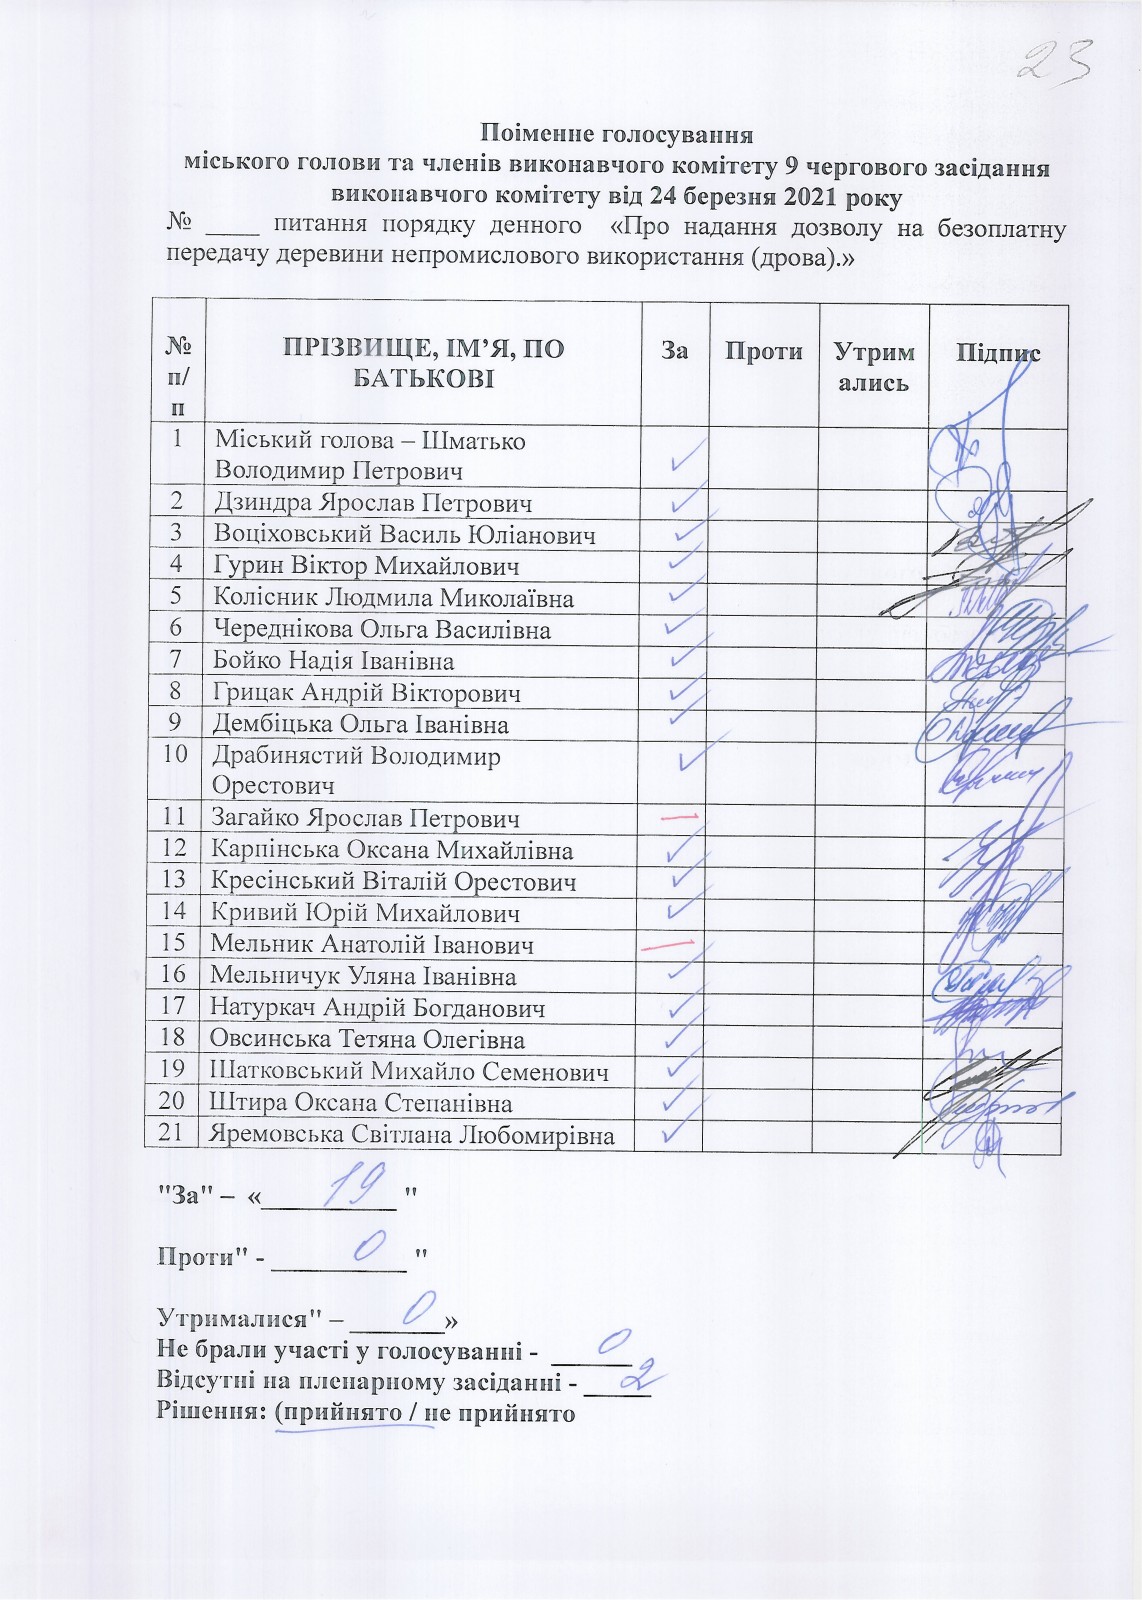 23
Поіменне голосування
міського голови та членів виконавчого комітету 9 чергового засідання
виконавчого комітету від 24 березня 2021 року
№ ____ питання порядку денного «Про надання дозволу на безоплатну
передачу деревини непромислового використання (дрова).»
№ п/п ПРІЗВИЩЕ, ІМ’Я, ПО БАТЬКОВІ За Проти Утримались Підпис
1 Міський голова – Шматько
Володимир Петрович
2 Дзиндра Ярослав Петрович
3 Воціховський Василь Юліанович
4 Гурин Віктор Михайлович
5 Колісник Людмила Миколаївна
6 Череднікова Ольга Василівна
7 Бойко Надія Іванівна
8 Грицак Андрій Вікторович
9 Дембіцька Ольга Іванівна
10 Драбинястий Володимир
Орестович
11 Загайко Ярослав Петрович
12 Карпінська Оксана Михайлівна
13 Кресінський Віталій Орестович
14 Кривий Юрій Михайлович
15 Мельник Анатолій Іванович
16 Мельничук Уляна Іванівна
17 Натуркач Андрій Богданович
18 Овсинська Тетяна Олегівна
19 Шатковський Михайло Семенович
20 Штира Оксана Степанівна
21 Яремовська Світлана Любомирівна
"За" – « 19 "
Проти" - 0 "
Утрималися" – 0 »
Не брали участі у голосуванні - 0
Відсутні на пленарному засіданні - 2
Рішення: (прийнято / не прийнято